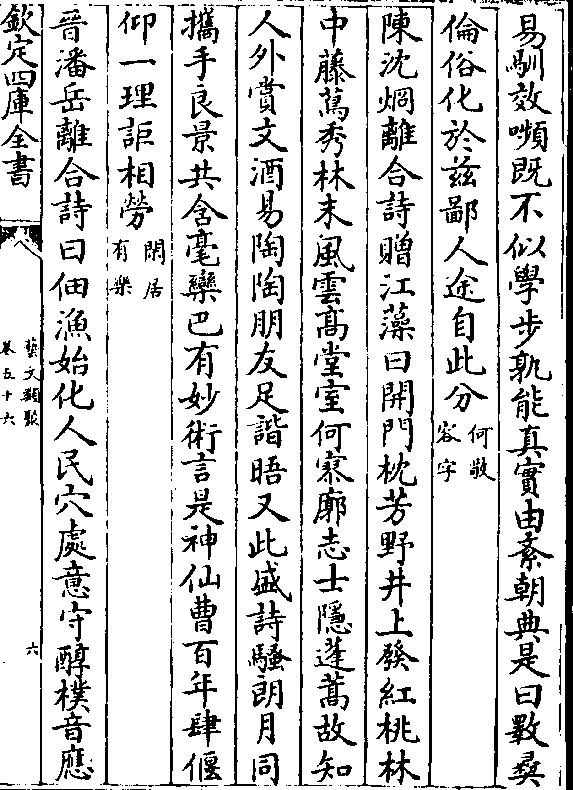 易馴效嚬既不似學步孰能真實由紊朝典是曰斁彛
倫俗化於兹鄙人途自此分何敬
容字
陳沈烱離合詩贈江藻曰開門枕芳野井上發紅桃林
中藤蔦秀林末風雲髙堂室何寥廓志士隠蓬蒿故知
人外賞文酒易陶陶朋友足諧晤又此盛詩騷朗月同
攜手良景共含毫欒巴有妙術言是神仙曹百年肆偃
仰一理詎相勞閑居
有樂
晉潘岳離合詩曰佃漁始化人民穴處意守醇樸音應
欽定四庫全書
藝文類聚
卷五十六
六